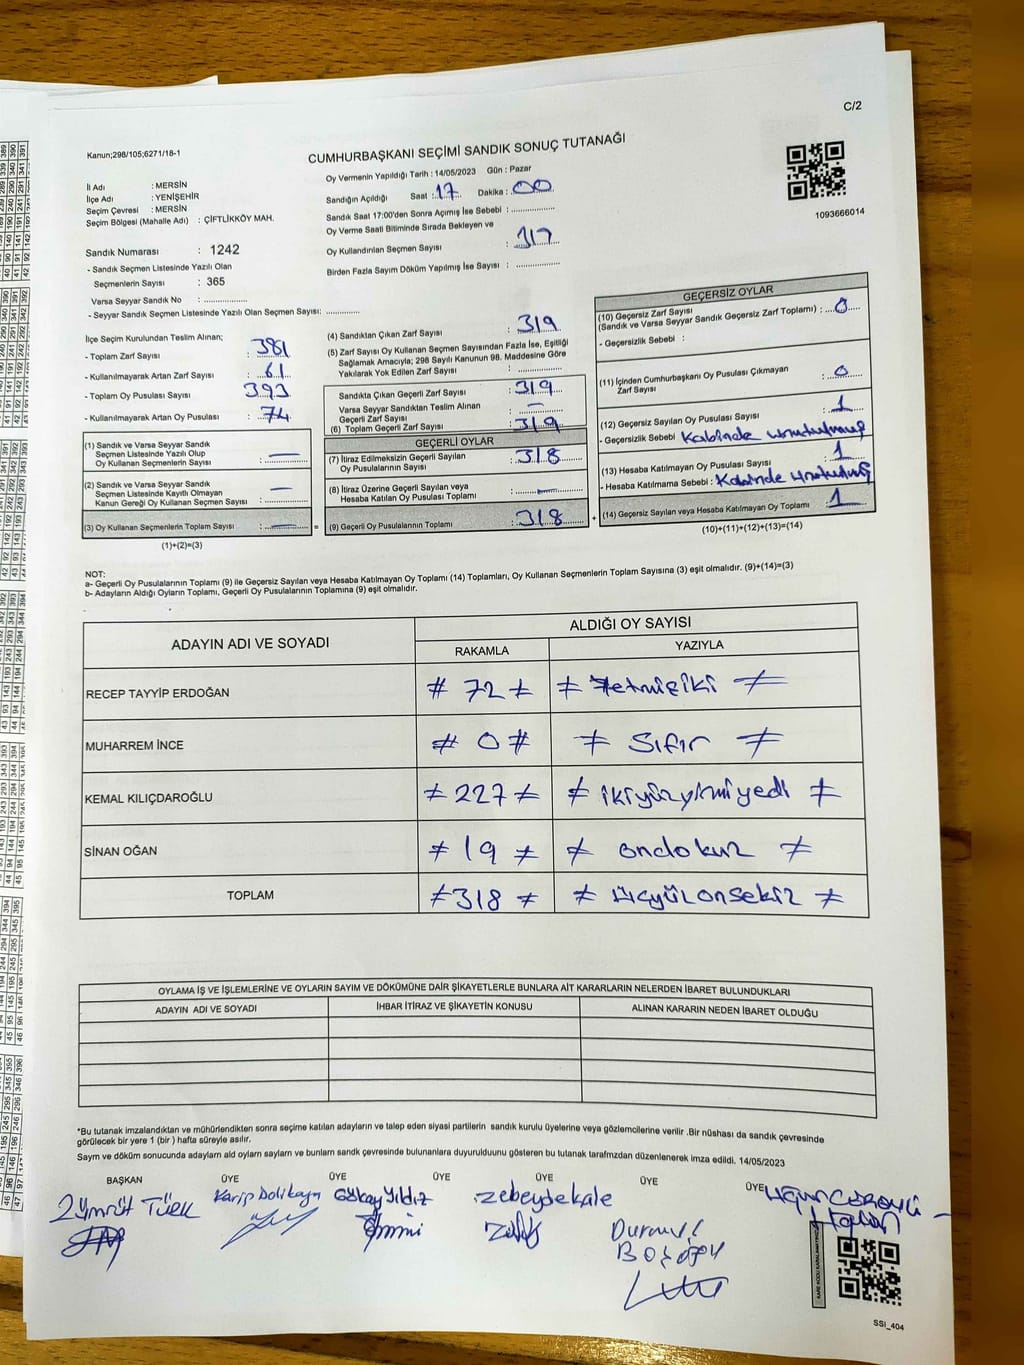 C/2
Kanun;298/105;6271/18-1
CUMHURBAŞKANI SEÇİMİ SANDIK SONUÇ TUTANAĞI
İl Adı : MERSİN
İlçe Adı : YENİŞEHİR
Seçim Çevresi : MERSİN
Seçim Bölgesi (Mahalle Adı) : ÇİFTLİKKÖY MAH.
Oy Vermenin Yapıldığı Tarih : 14/05/2023 Gün : Pazar
Sandığın Açıldığı Saat : 17 Dakika : 00
Sandık Saat 17:00'den Sonra Açımış İse Sebebi :
Oy Verme Saati Bitiminde Sırada Bekleyen ve
Oy Kullandırılan Seçmen Sayısı : 317
Birden Fazla Sayım Döküm Yapılmış İse Sayısı :
1093666014
Sandık Numarası : 1242
- Sandık Seçmen Listesinde Yazılı Olan
Seçmenlerin Sayısı : 365
Varsa Seyyar Sandık No :
- Seyyar Sandık Seçmen Listesinde Yazılı Olan Seçmen Sayısı:
İlçe Seçim Kurulundan Teslim Alınan;
- Toplam Zarf Sayısı : 381
- Kullanılmayarak Artan Zarf Sayısı : 61
- Toplam Oy Pusulası Sayısı : 393
- Kullanılmayarak Artan Oy Pusulası : 74
(1) Sandık ve Varsa Seyyar Sandık
Seçmen Listesinde Yazılı Olup
Oy Kullanan Seçmenlerin Sayısı : —
(2) Sandık ve Varsa Seyyar Sandık
Seçmen Listesinde Kayıtlı Olmayan
Kanun Gereği Oy Kullanan Seçmen Sayısı : —
(3) Oy Kullanan Seçmenlerin Toplam Sayısı : — =
(1)+(2)=(3)
(4) Sandıktan Çıkan Zarf Sayısı : 319
(5) Zarf Sayısı Oy Kullanan Seçmen Sayısından Fazla İse, Eşitliği
Sağlamak Amacıyla; 298 Sayılı Kanunun 98. Maddesine Göre
Yakılarak Yok Edilen Zarf Sayısı :
Sandıkta Çıkan Geçerli Zarf Sayısı : 319
Varsa Seyyar Sandıktan Teslim Alınan
Geçerli Zarf Sayısı : —
(6) Toplam Geçerli Zarf Sayısı : 319
GEÇERLİ OYLAR
(7) İtiraz Edilmeksizin Geçerli Sayılan
Oy Pusulalarının Sayısı : 318
(8) İtiraz Üzerine Geçerli Sayılan veya
Hesaba Katılan Oy Pusulası Toplamı : —
(9) Geçerli Oy Pusulalarının Toplamı : 318 +
GEÇERSİZ OYLAR
(10) Geçersiz Zarf Sayısı
(Sandık ve Varsa Seyyar Sandık Geçersiz Zarf Toplamı) : 0
- Geçersizlik Sebebi :
(11) İçinden Cumhurbaşkanı Oy Pusulası Çıkmayan
Zarf Sayısı : 0
(12) Geçersiz Sayılan Oy Pusulası Sayısı : 1
- Geçersizlik Sebebi : Kabinde unutulmuş
(13) Hesaba Katılmayan Oy Pusulası Sayısı : 1
- Hesaba Katılmama Sebebi : Kabinde unutulmuş
(14) Geçersiz Sayılan veya Hesaba Katılmayan Oy Toplamı : 1
(10)+(11)+(12)+(13)=(14)
NOT:
a- Geçerli Oy Pusulalarının Toplamı (9) ile Geçersiz Sayılan veya Hesaba Katılmayan Oy Toplamı (14) Toplamları, Oy Kullanan Seçmenlerin Toplam Sayısına (3) eşit olmalıdır. (9)+(14)=(3)
b- Adayların Aldığı Oyların Toplamı, Geçerli Oy Pusulalarının Toplamına (9) eşit olmalıdır.
ADAYIN ADI VE SOYADI ALDIĞI OY SAYISI
RAKAMLA YAZIYLA
RECEP TAYYİP ERDOĞAN # 72 ≠ ≠ Yetmişiki ≠
MUHARREM İNCE # 0 # ≠ Sıfır ≠
KEMAL KILIÇDAROĞLU ≠ 227 ≠ ≠ ikiyüzyirmiyedi ≠
SİNAN OĞAN ≠ 19 ≠ ≠ ondokuz ≠
TOPLAM ≠ 318 ≠ ≠ üçyüzonsekiz ≠
OYLAMA İŞ VE İŞLEMLERİNE VE OYLARIN SAYIM VE DÖKÜMÜNE DAİR ŞİKAYETLERLE BUNLARA AİT KARARLARIN NELERDEN İBARET BULUNDUKLARI
ADAYIN ADI VE SOYADI İHBAR İTİRAZ VE ŞİKAYETİN KONUSU ALINAN KARARIN NEDEN İBARET OLDUĞU
*Bu tutanak imzalandıktan ve mühürlendikten sonra seçime katılan adayların ve talep eden siyasi partilerin sandık kurulu üyelerine veya gözlemcilerine verilir .Bir nüshası da sandık çevresinde
görülecek bir yere 1 (bir ) hafta süreyle asılır.
Sayım ve döküm sonucunda adayların ald oyların sayların ve bunların sandk çevresinde bulunanlara duyurulduunu gösteren bu tutanak tarafmzdan düzenlenerek imza edildi. 14/05/2023
BAŞKAN ÜYE ÜYE ÜYE ÜYE ÜYE ÜYE
Zümrüt Türk Gökay Yıldız Zebeyde kale
Durmuş
SSI_404